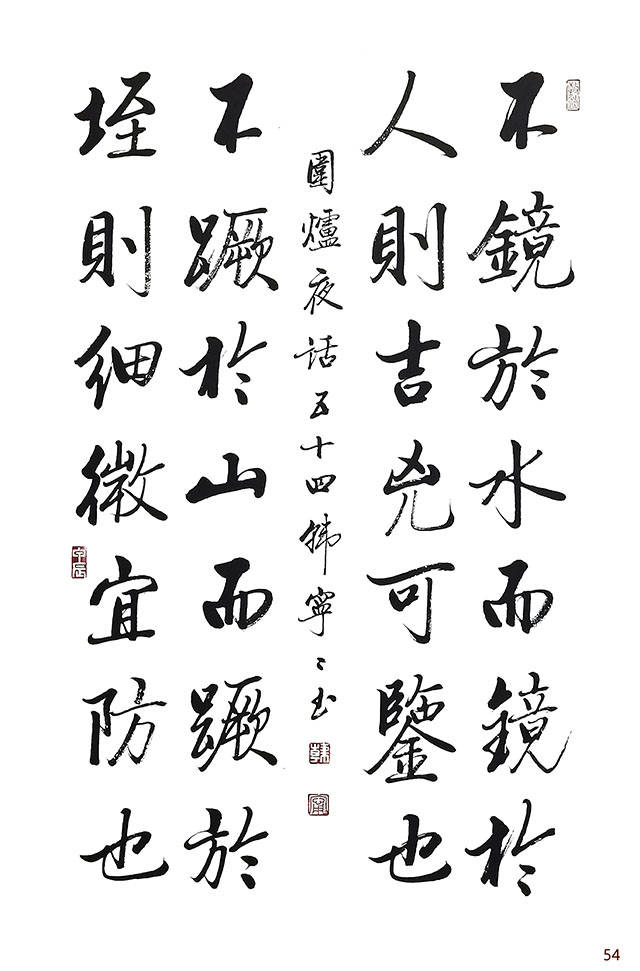 不鏡於水而鏡於
人則吉兇可鑒也
圍爐夜话五十四韩寧〻书
韓
不蹶於山而蹶於
垤則細微宜防也
54